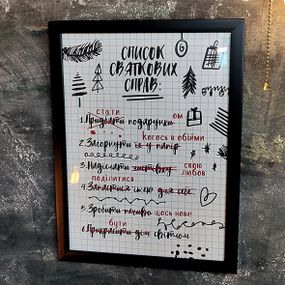 СПИСОК
СВЯТКОВИХ
СПРАВ:
стати ом
1. Придбати подарунки
Когось в обійми
2. Загорнути їх у папір
свою любов
3. Надіслати листівку
поділитися
4. Запастися їжею для
5. Зробити щось нове
бути
6. Прикрасити дім світлом